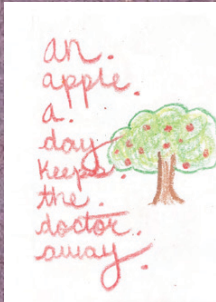 an.
apple.
a.
day
keeps.
the.
doctor.
away.